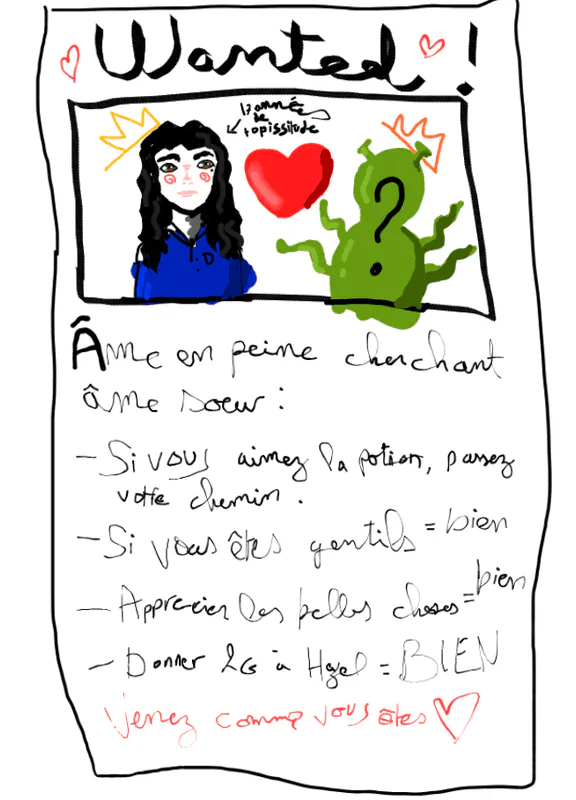 Wanted !
l'année
de
topissitude
?
Âme en peine cherchant
âme soeur :
- Si vous aimez la potion, passez
votre chemin.
- Si vous êtes gentils = bien
- Apprecier les belles choses = bien
- Donner 2G à Hazel = BIEN
Venez comme vous êtes